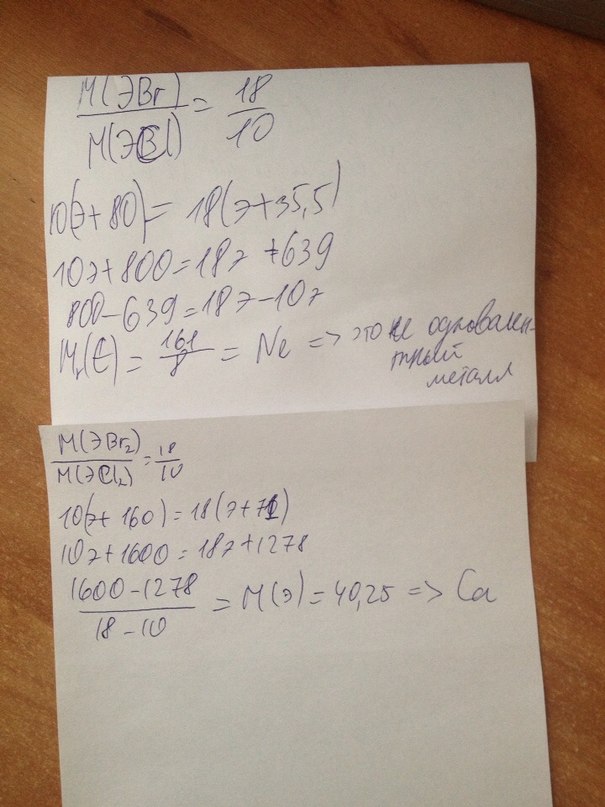 М(ЭBr) / М(ЭCl) = 18 / 10
10(э + 80) = 18(э + 35,5)
10э + 800 = 18э + 639
800 - 639 = 18э - 10э
= 161 / 8 = Ne => это не одновален-
тный
металл
М(ЭBr₂) / М(ЭCl₂) = 18 / 10
10(э + 160) = 18(э + 71)
10э + 1600 = 18э + 1278
1600 - 1278 / 18 - 10 = М(э) = 40,25 => Ca